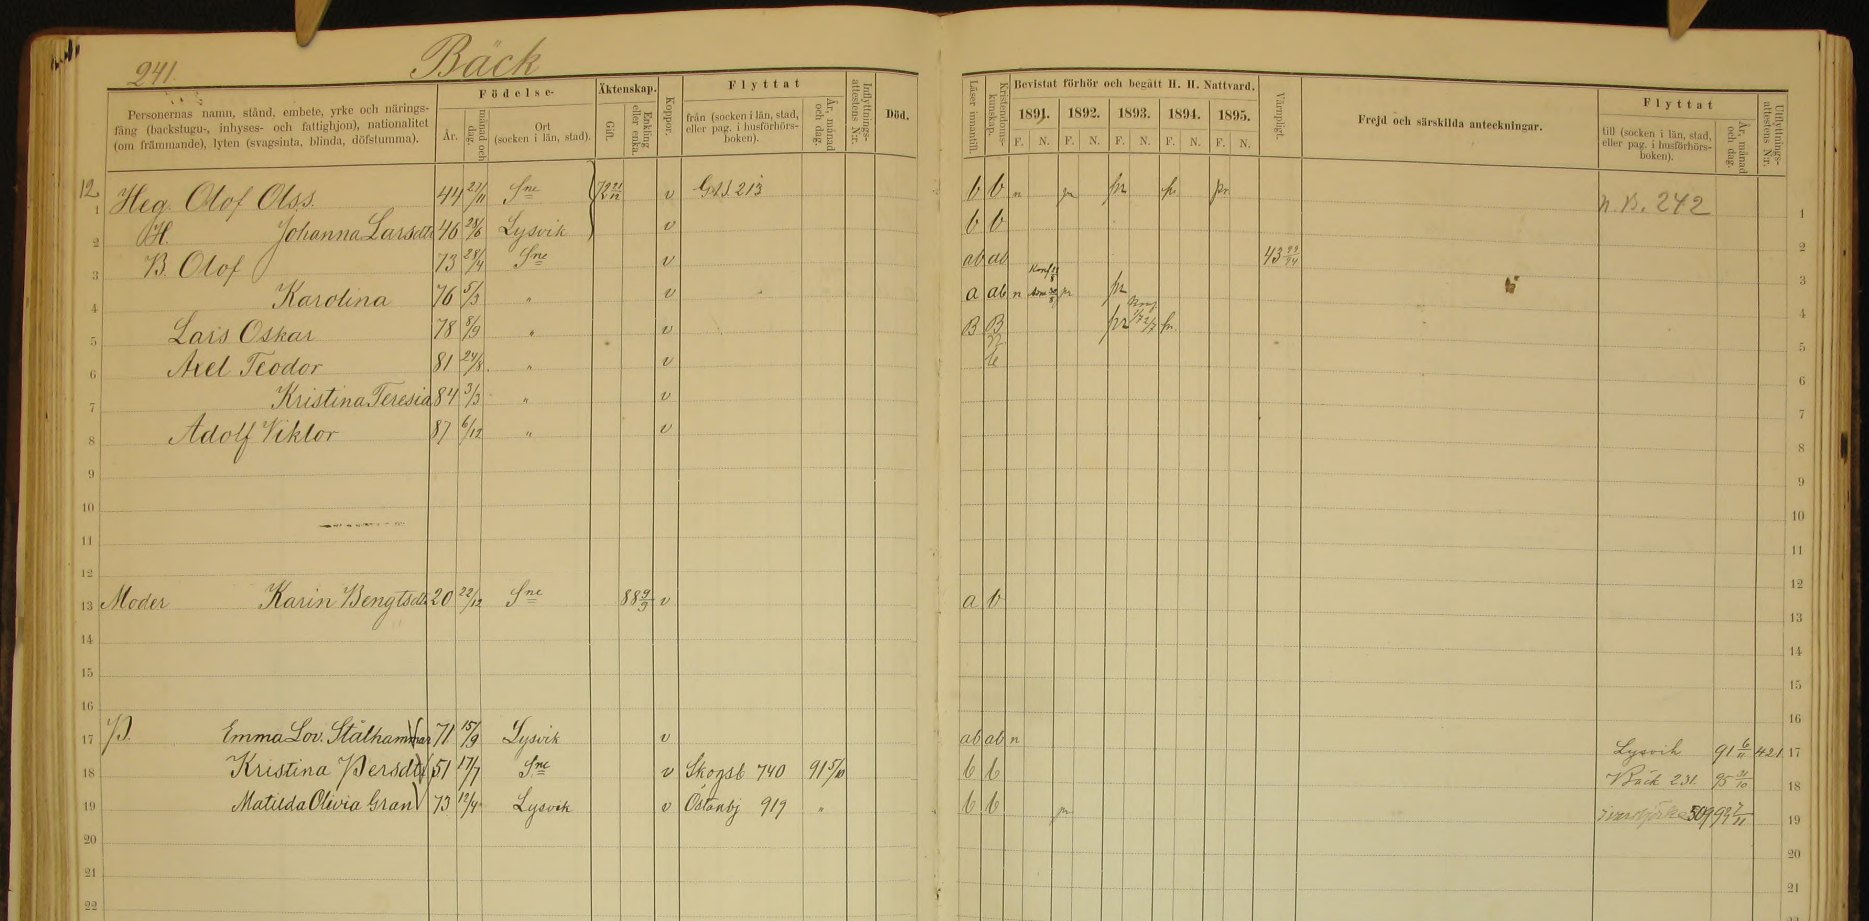 241.
Bäck
Personernas namn, stånd, embete, yrke och närings-
fång (backstugu-, inhyses- och fattighjon), nationalitet
(om främmande), lyten (svagsinta, blinda, döfstumma).
Födelse-
År.
månad och dag.
Ort
(socken i län, stad).
Äktenskap.
Gift.
Enkling eller enka.
Koppor.
Flyttat
från (socken i län, stad,
eller pag. i husförhörs-
boken).
År, månad och dag.
Inflyttnings-attestens N:r.
Död.
Läser innantill.
Kristendoms-kunskap.
Bevistat förhör och begått H. H. Nattvard.
1891. 1892. 1893. 1894. 1895.
F. N. F. N. F. N. F. N. F. N.
Värnpligt.
Frejd och särskilda anteckningar.
Flyttat
till (socken i län, stad,
eller pag. i husförhörs-
boken).
År, månad och dag.
Utflyttnings-attestens N:r.
12
1 Heg. Olof Olss. 44 23/11 Sne 72 21/12 v G.l.l. 213 b b n pr pr pr pr N.B. 242 1
2 H. Johanna Larsdtr 46 28/6 Lysvik v b b 2
3 B. Olof 73 28/4 Sne v ab ab 43 23/94 3
4 Karolina 76 5/3 " v a ab n pr pr 4
5 Lars Oskar 78 8/9 " v B B pr pr 5
6 Axel Teodor 81 24/8 " v b 6
7 Kristina Teresia 84 3/3 " v 7
8 Adolf Viktor 87 6/12 " v 8
9 9
10 10
11 11
12 12
13 Moder Karin Bengtsdtr 20 22/12 Sne 88 9/9 v a b 13
14 14
15 15
16 16
17 P. Emma Lov. Stålhammar 71 15/9 Lysvik v ab ab n Lysvik 91 6/11 421 17
18 Kristina Persdtr 51 17/7 Sne v Skogsb 740 91 5/10 b b Bäck 231 95 31/10 18
19 Matilda Olivia Gran 73 12/4 Lysvik v Östanbj 919 " b b pr 509 92 7/11 19
20 20
21 21
22